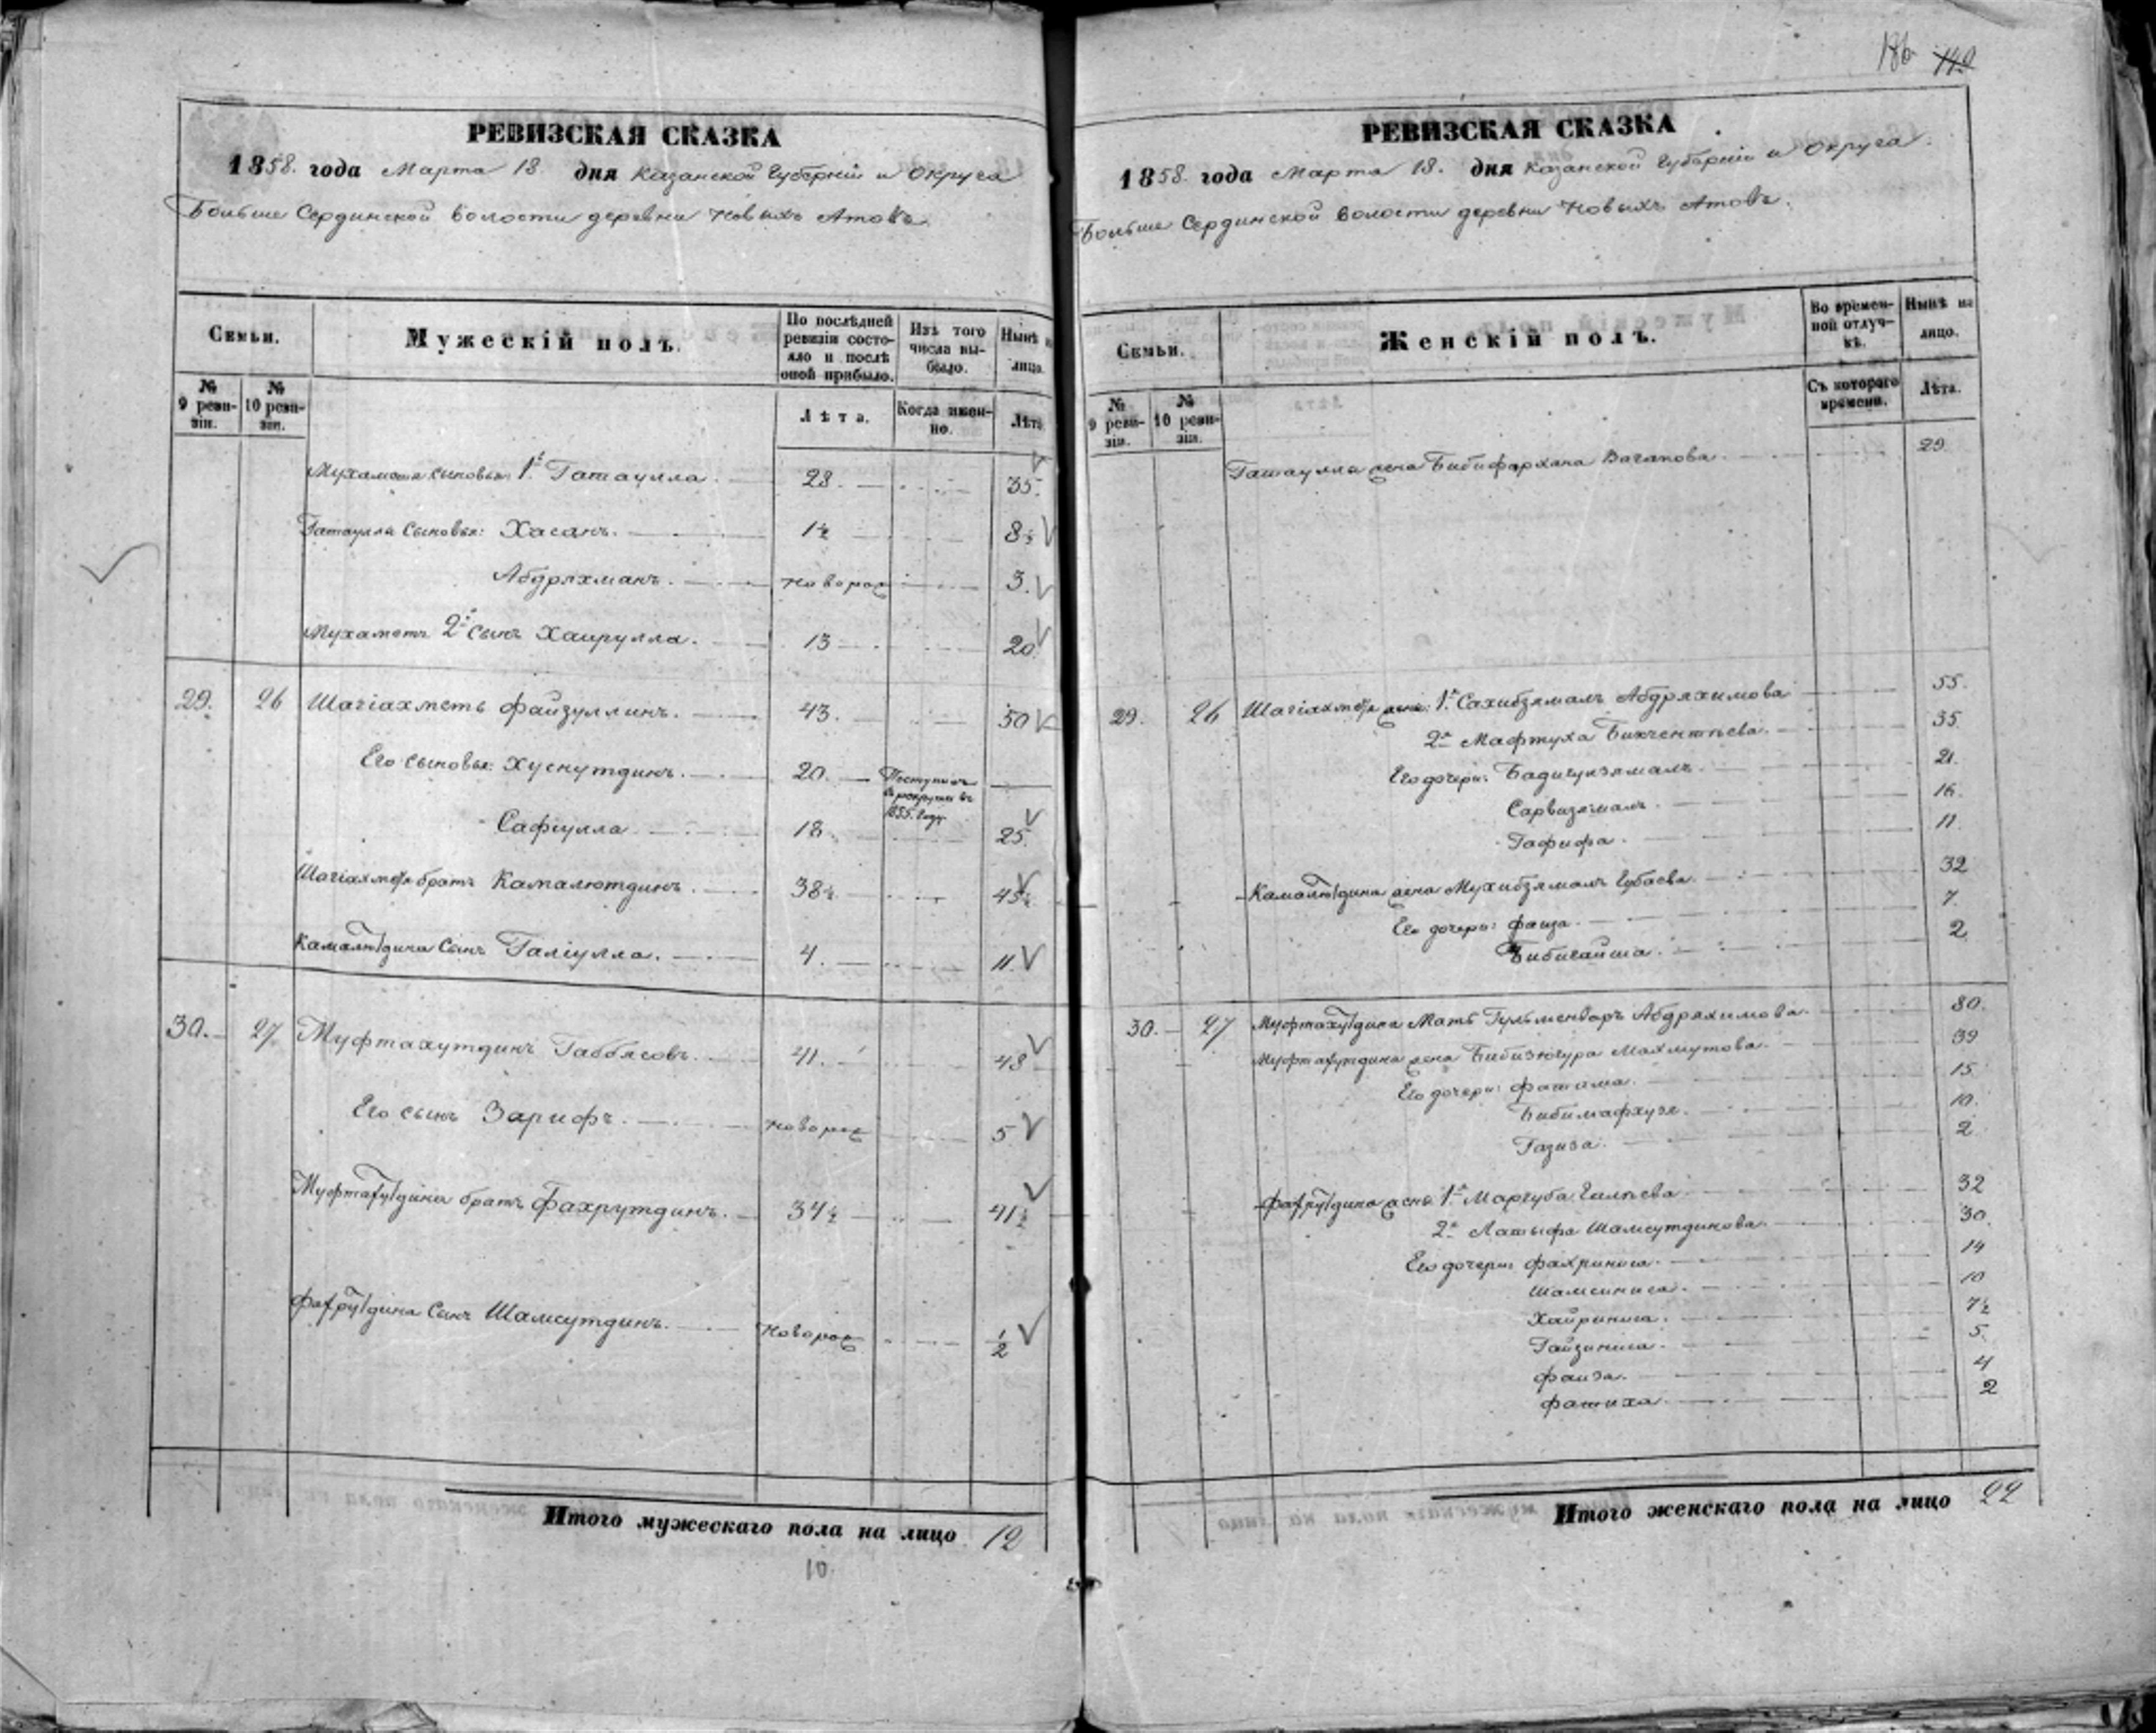 186 142
РЕВИЗСКАЯ СКАЗКА
1858. года Марта 18. дня Казанской Губерніи и Округа
Больше Сердинской волости деревни Новыхъ Атовъ.
Семьи.
Мужескій полъ.
По послѣдней ревизіи состояло и послѣ оной прибыло.
Изъ того числа выбыло.
Нынѣ на лицо.
№ 9 ревизіи.
№ 10 ревизіи.
Лѣта.
Когда именно.
Лѣта.
Мухаметя сыновья: 1й Гатаулла. 28. 35.
Гатауллы сыновья: Хасанъ. 1½ 8½
Абдряхманъ. новорож 3.
Мухаметя 2й сынъ Хаирулла. 13 20.
29. 26 Шагіахметь Файзуллинъ. 43. 50
Его сыновья: Хуснутдинъ. 20. Поступилъ въ рекруты въ 1855. году
Сафіулла. 18. 25.
Шагіахметя братъ Камалютдинъ. 38½ 45½
Камалютдина сынъ Галіулла. 4. 11.
30. 27 Муфтахутдинъ Габбясовъ. 41. 48
Его сынъ Зарифъ. новорож 5
Муфтахутдина братъ Фахрутдинъ. 34½ 41½
Фахрутдина сынъ Шамсутдинъ. новорож ½
Итого мужескаго пола на лицо 12
10.
РЕВИЗСКАЯ СКАЗКА
1858. года Марта 18. дня Казанской Губерніи и Округа.
Больше Сердинской волости деревни Новыхъ Атовъ.
Семьи.
Женскій полъ.
Во временной отлучкѣ.
Нынѣ на лицо.
№ 9 ревизіи.
№ 10 ревизіи.
Съ котораго времени.
Лѣта.
Гатауллы жена Бибифархана Вагапова. 29.
29. 26 Шагіахметя жены: 1я Сахибзямалъ Абдряхимова 55.
2я Мафтуха Бикчентьева. 35.
Его дочери: Бадигулзямалъ. 21.
Сарвизямалъ. 16.
Гафифа. 11.
Камалютдина жена Мухибзямалъ Губаева. 32
Его дочери: Фаиза. 7.
Бибигайша. 2
30. 27 Муфтахутдина мать Гульменваръ Абдряхимова. 80.
Муфтахутдина жена Бибизюгура Махмутова. 39
Его дочери: Фатима. 15.
Бибимафхузя. 10.
Газиза. 2
Фахрутдина жены 1я Маргуба 32
2я Латыфа Шамсутдинова. 30.
Его дочери: Фахриниса. 14
Шамсиниса. 10
Хайриниса. 7½
Гайзиниса. 5.
Фаиза. 4
Фатиха. 2
Итого женскаго пола на лицо 22